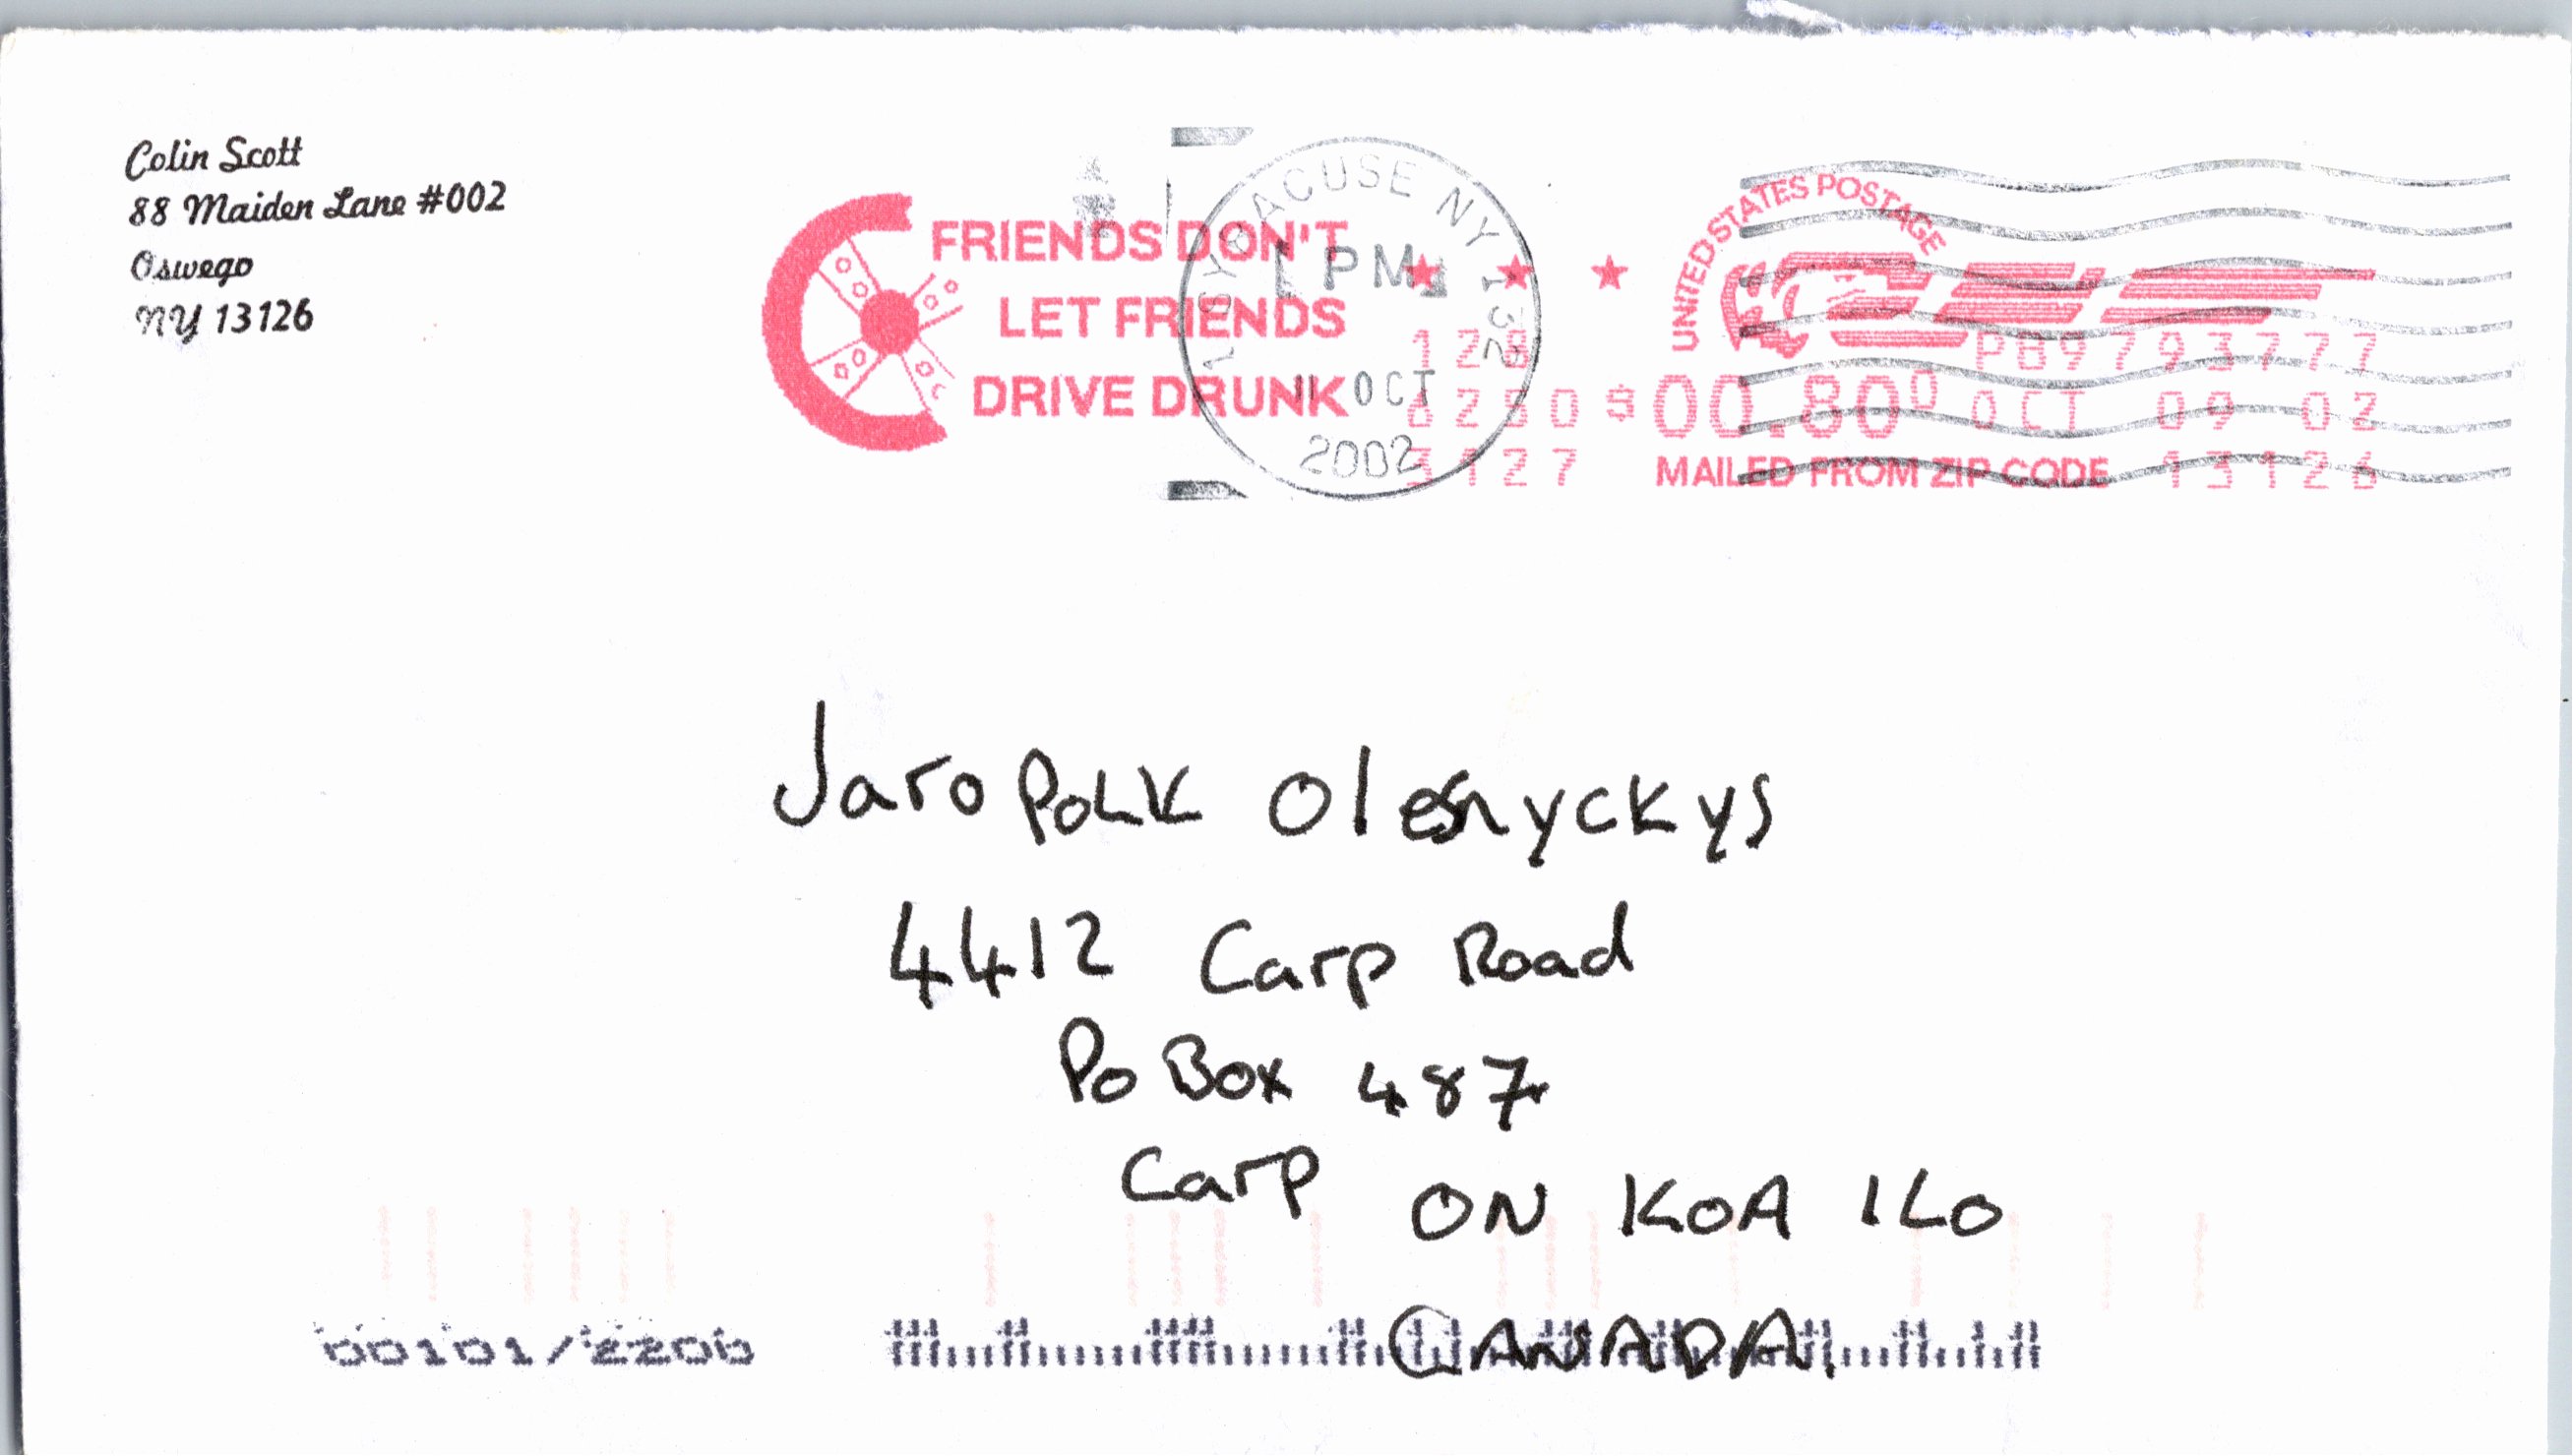 Colin Scott
88 Maiden Lane #002
Oswego
NY 13126
FRIENDS DON'T
LET FRIENDS
DRIVE DRUNK
SYRACUSE NY 132
PM
11 OCT
2002
UNITED STATES POSTAGE
PB9793777
$00.80⁰ OCT 09 02
3127 MAILED FROM ZIP CODE 13126
Jaropolk Olesnyckys
4412 Carp Road
Po Box 487
Carp ON K0A 1L0
CANADA.